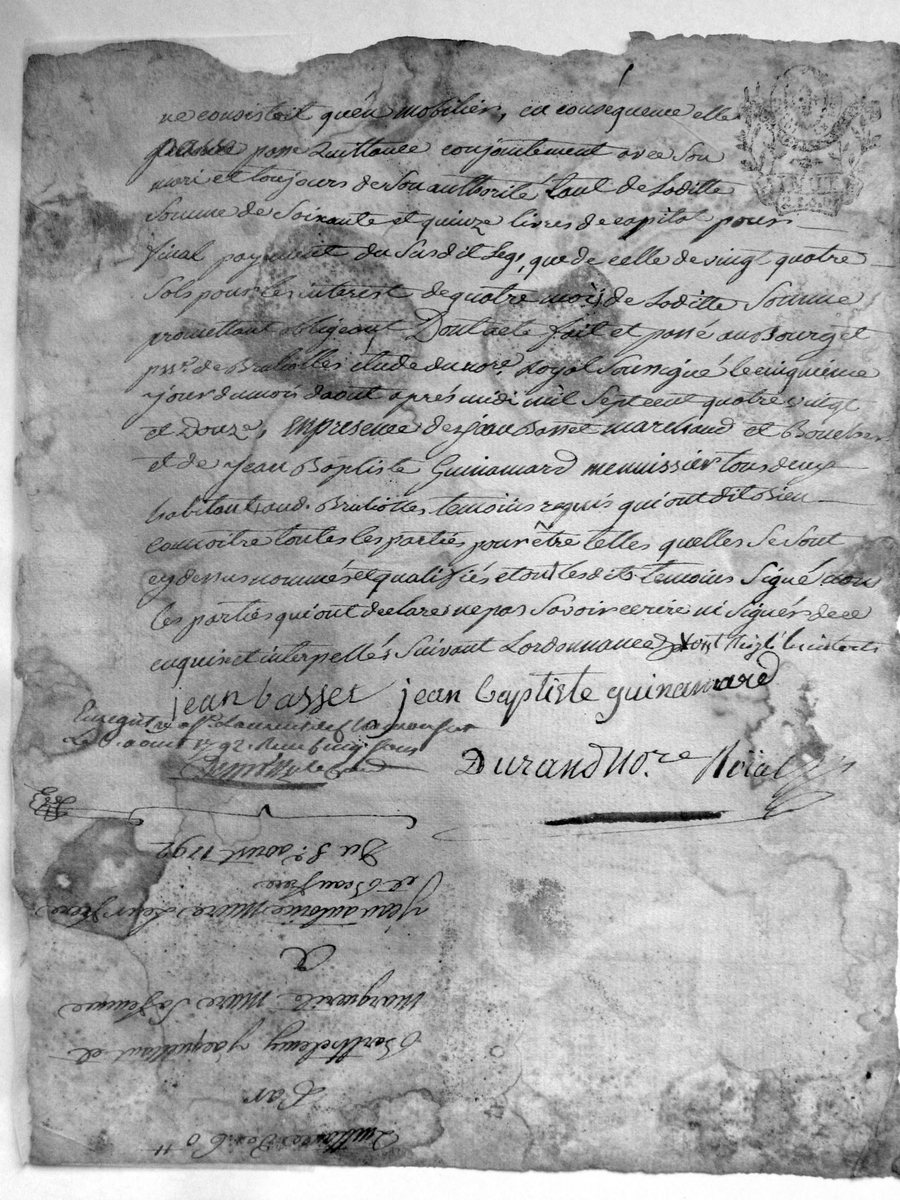 ne consistoit qu'en mobilier, en conséquence elle
passe quittance conjointement avec Son
mari et toujours de Son authorité tant de Laditte
Somme de Soixante et quinze livres de capital pour
final payement du Susdit Legs, que de celle de vingt quatre
Sols pour les interest de quatre mois de Laditte Somme
promettant obligeant Dont acte fait et passé au Bourg et
de Brulioles étude du nore Royal Soussigné le cinquieme
jour du mois d'aout après midi mil Septcent quatre vingt
et Douze, en presence de jean Basset marchand et
et de jean Baptiste Guinamard menuissier tous deux
habitant aud. Brulioles temoins requis qui ont dit bien
connoitre toutes les parties pour être telles quelles Se Sont
cy dessus nommés et qualifiés et ont lesdits temoins Signé non
les parties qui ont declaré ne pas Savoir ecrire ni Signer de ce
enquis et interpellés Suivant Lordonnance
jean basset jean baptiste guinamard
Enregistré a St Laurent de Chamousset
Le aout 1792. Reçu cinq Sous
Durand No.re Roïal
Quittance De 60 tt
Par
Barthelemy Jacquemet et
Marguerite Mure Sa femme
a
Jean antoine Mure Leur frere
et Beaufrere
Du 5e. aoust 1792